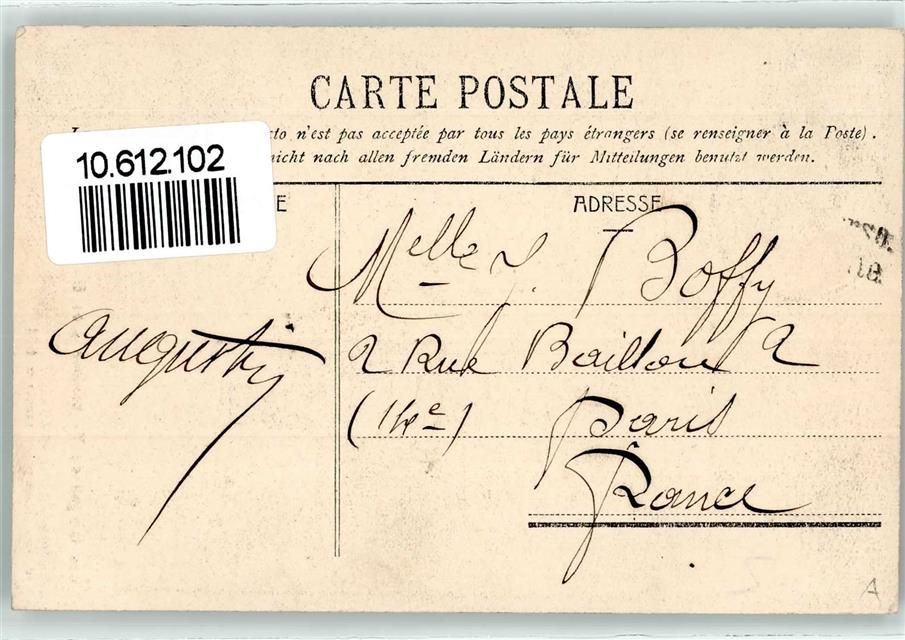 CARTE POSTALE
n'est pas acceptée par tous les pays étrangers (se renseigner à la Poste).
nicht nach allen fremden Ländern für Mitteilungen benutzt werden.
10.612.102
ADRESSE
Melle J. Boffy
Augustin
2 Rue Baillou 2
Paris
France
A